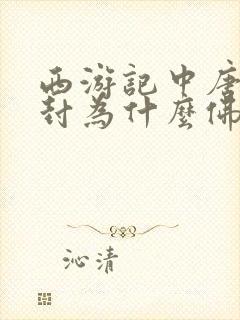 西游記中唐
封為什麼佛
沁清